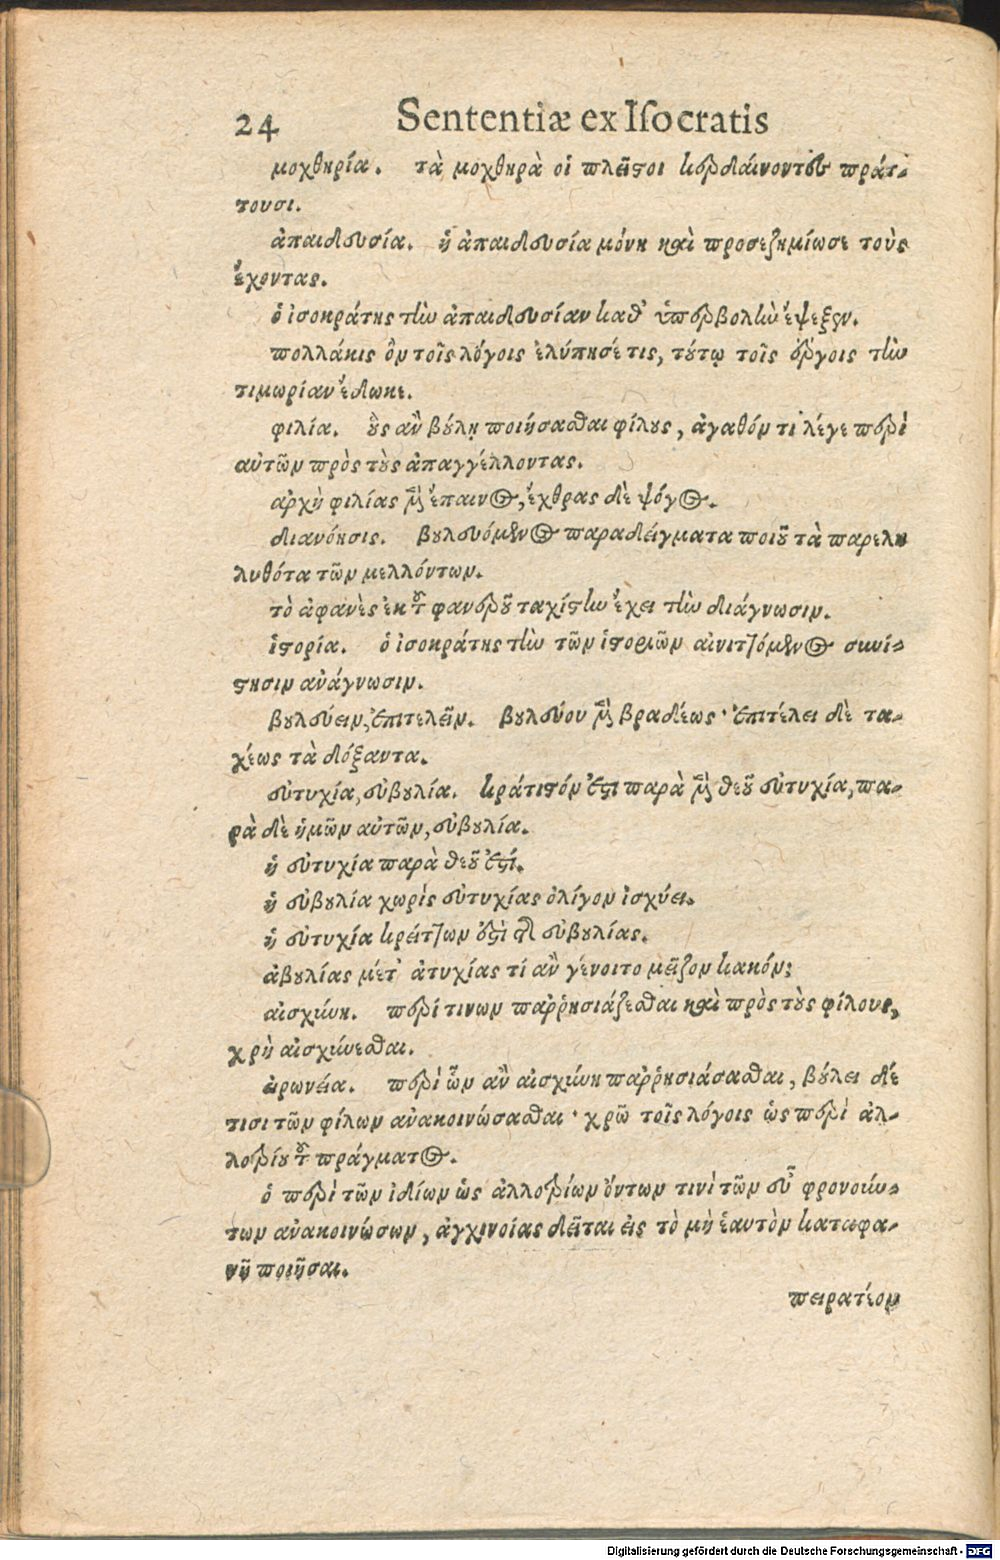 24 Sententiæ ex Iſocratis
μοχθηρία. τὰ μοχθηρὰ οἱ πλεῖστοι κερδαίνοντες πράτ-
τουσι.
ἀπαιδευσία. ἡ ἀπαιδευσία μόνη καὶ προσεζημίωσε τοὺς
ἔχοντας.
ὁ ἰσοκράτης τὴν ἀπαιδευσίαν καθ' ὑπερβολὴν ἔψεξεν.
πολλάκις ὃν τοῖς λόγοις ἐλύπησέ τις, τούτῳ τοῖς ἔργοις τὴν
τιμωρίαν ἔδωκε.
φιλία. οὓς ἂν βούλῃ ποιήσασθαι φίλους, ἀγαθόν τι λέγε περὶ
αὐτῶν πρὸς τοὺς ἀπαγγέλλοντας.
ἀρχὴ φιλίας μὲν ἔπαινος, ἔχθρας δὲ ψόγος.
διανόησις. βουλευόμενος παραδείγματα ποιοῦ τὰ παρελη
λυθότα τῶν μελλόντων.
τὸ ἀφανὲς ἐκ τοῦ φανεροῦ ταχίστην ἔχει τὴν διάγνωσιν.
ἱστορία. ὁ ἰσοκράτης τὴν τῶν ἱστοριῶν αἰνιττόμενος συνί-
στησιν ἀνάγνωσιν.
βουλεύειν, ἐπιτελεῖν. βουλεύου μὲν βραδέως· ἐπιτέλει δὲ τα-
χέως τὰ δόξαντα.
εὐτυχία, εὐβουλία. κράτιστόν ἐστι παρὰ μὲν θεοῦ εὐτυχία, πα-
ρὰ δὲ ἡμῶν αὐτῶν, εὐβουλία.
ἡ εὐτυχία παρὰ θεοῦ ἐστί.
ἡ εὐβουλία χωρὶς εὐτυχίας ὀλίγον ἰσχύει.
ἡ εὐτυχία κρείττων ἐστὶ τῆς εὐβουλίας.
ἀβουλίας μετ' ἀτυχίας τί ἂν γένοιτο μεῖζον κακόν;
αἰσχύνη. περί τινων παῤῥησιάζεσθαι καὶ πρὸς τοὺς φίλους,
χρὴ αἰσχύνεσθαι.
εἰρωνεία. περὶ ὧν ἂν αἰσχύνῃ παῤῥησιάσασθαι, βούλει δέ
τισι τῶν φίλων ἀνακοινώσασθαι· χρῶ τοῖς λόγοις ὡς περὶ ἀλ-
λοτρίου τοῦ πράγματος.
ὁ περὶ τῶν ἰδίων ὡς ἀλλοτρίων ὄντων τινὶ τῶν εὖ φρονούν-
των ἀνακοινώσων, ἀγχινοίας δεῖται εἰς τὸ μὴ ἑαυτὸν καταφα-
νῆ ποιῆσαι.
πειρατέον
Digitalisierung gefördert durch die Deutsche Forschungsgemeinschaft - DFG